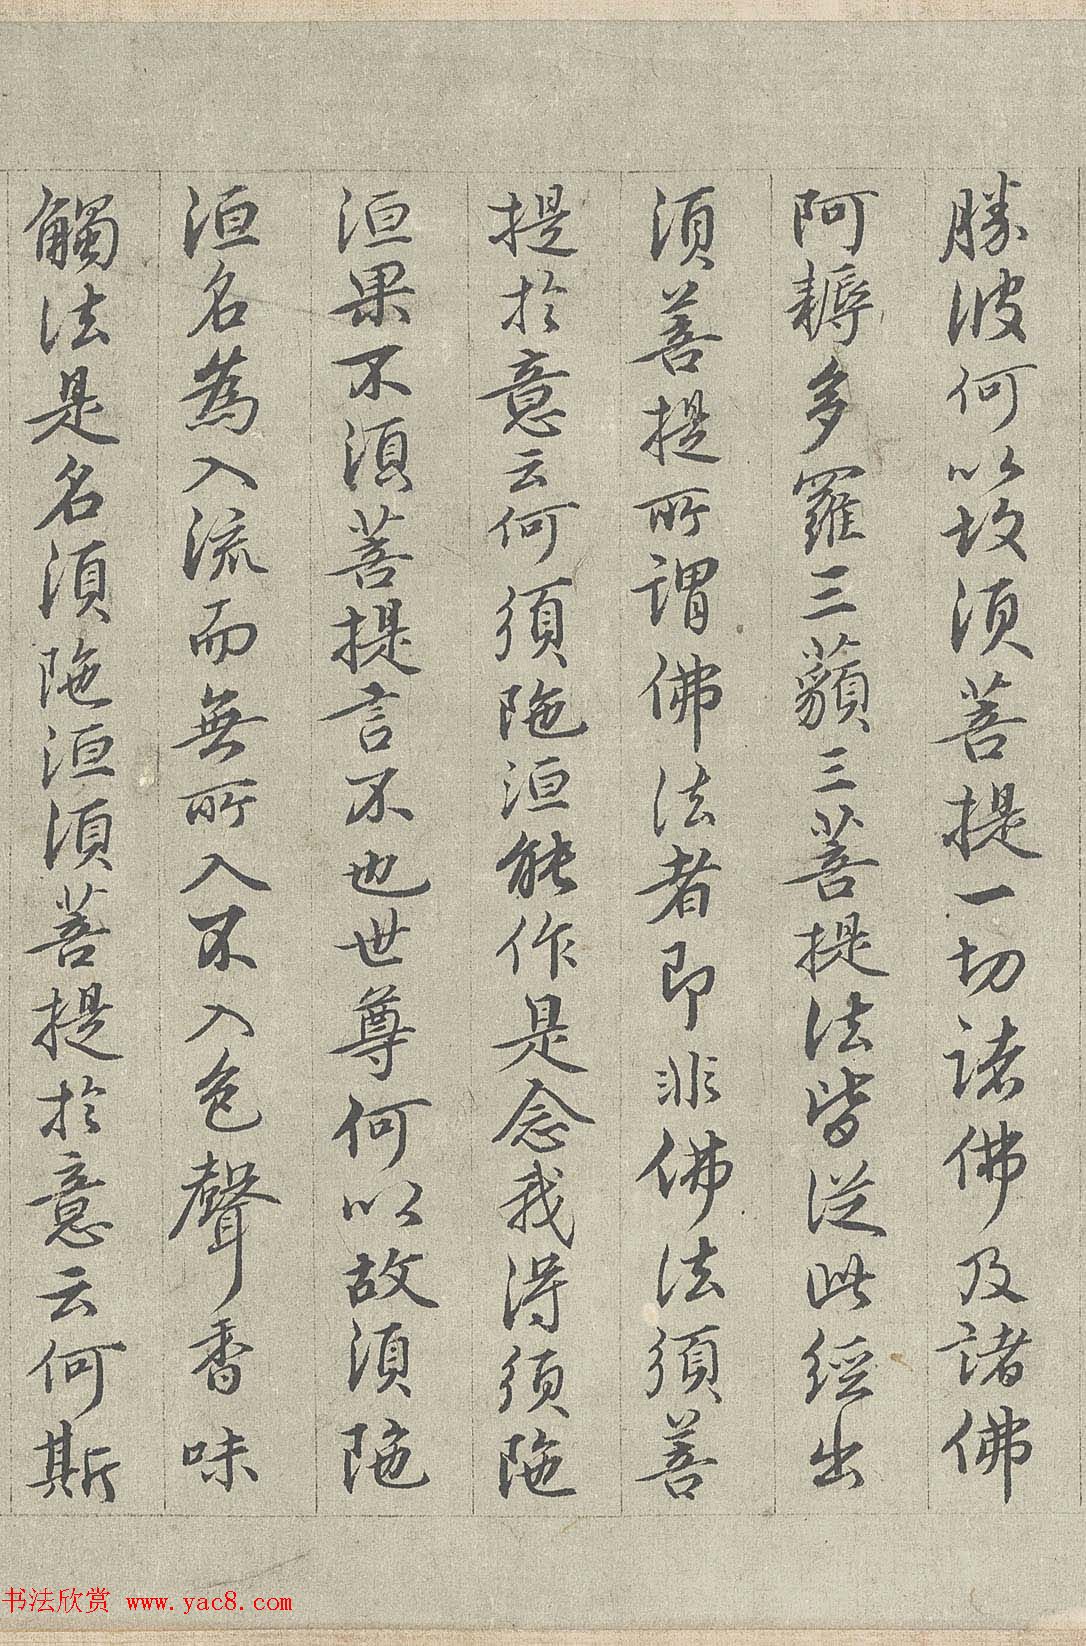 勝彼何以故須菩提一切諸佛及諸佛
阿耨多羅三藐三菩提法皆從此經出
須菩提所謂佛法者即非佛法須菩
提於意云何須陁洹能作是念我得須陁
洹果不須菩提言不也世尊何以故須陁
洹名為入流而無所入不入色聲香味
觸法是名須陁洹須菩提於意云何斯
书法欣赏 www.yac8.com